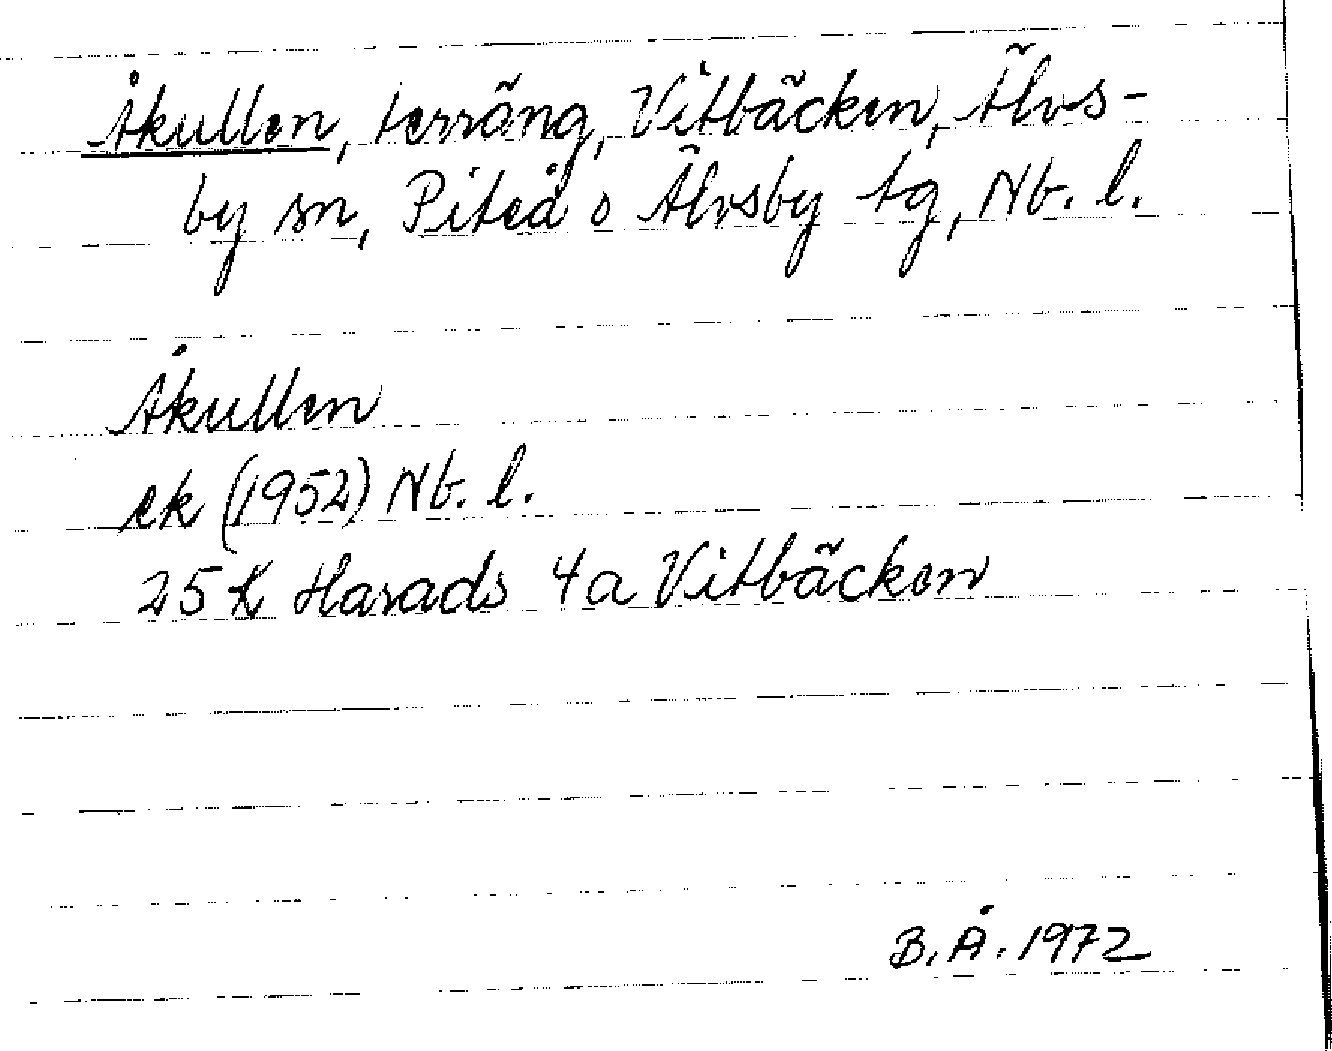 Åkullen, terräng, Vitbäcken, Älvs-
by sn, Piteå o Älvsby tg, Nb. l.
Åkullen
ek (1952) Nb. l.
25 K Harads 4a Vitbäcken
B. Å. 1972